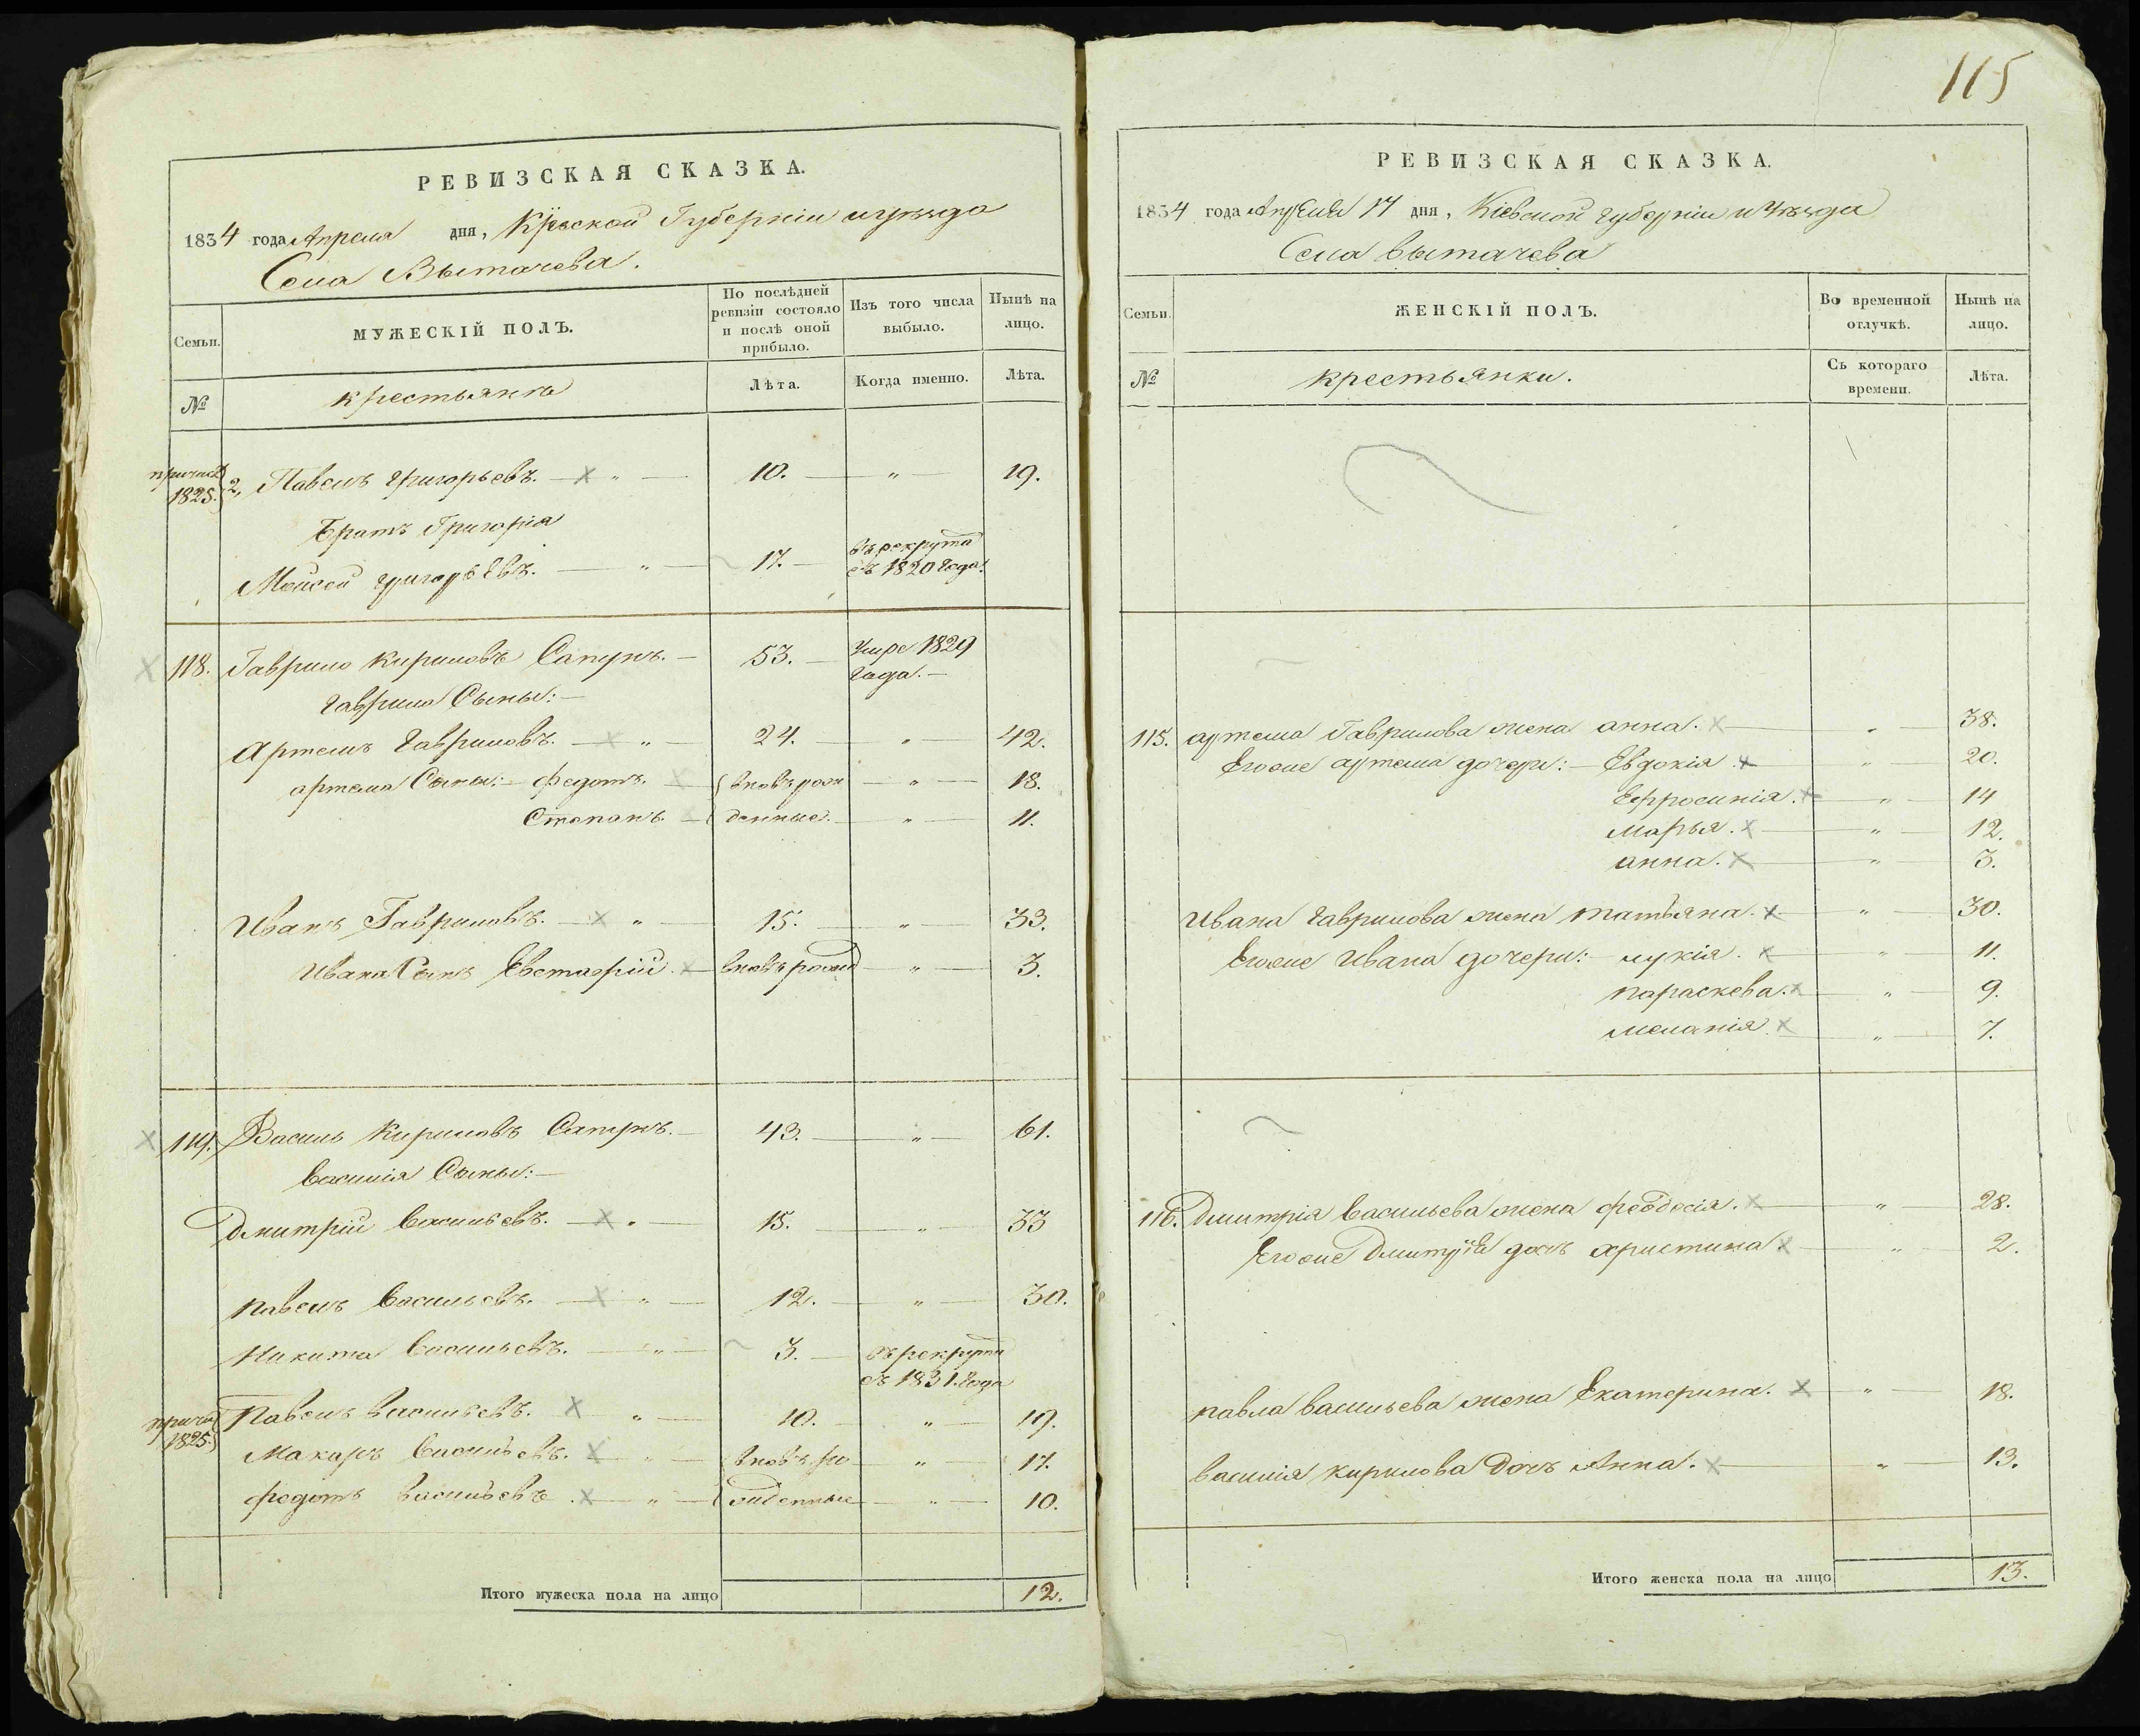 РЕВИЗСКАЯ СКАЗКА.
1834 года Апреля дня, Кіевской Губерніи и уезда
Села Вытачева.
Семьи.
МУЖЕСКІЙ ПОЛЪ.
По послѣдней ревизіи состояло и послѣ оной прибыло.
Изъ того числа выбыло.
Нынѣ на лицо.
№
крестьяне
Лѣта.
Когда именно.
Лѣта.
1825. 2, Павелъ Григорьевъ. — " — 10. — " — 19.
Братъ Григорія
Моисей Григорьевъ. — " — 17. — въ рекрута
съ 1820 года.
118. Гаврило Кириловъ Сапунъ. — 53. — Умре 1829
года. —
Гаврила Сыны: —
Артемъ Гавриловъ. — " — 24. — " — 42.
артема Сыны: — Федотъ. — вновърож — " — 18.
Степанъ. — денные. — " — 11.
Иванъ Гавриловъ. — " — 15. — " — 33.
Ивана Сынъ Евстафій — вновърожд — " — 3.
119. Василь Кириловъ Сапунъ. — 43. — " — 61.
Василія Сыны: —
Дмитрій Васильевъ. — " — 15. — " — 33
Павелъ Васильевъ. — " — 12. — " — 30.
Никита Васильевъ. — " — 3. — въ рекруты
съ 1831. года
1825. Павелъ Васильевъ. " — 10. — " — 19.
Макаръ Васильевъ. — " — вновъ ро — " — 17.
Федотъ Васильевъ. — " — жденные — " — 10.
Итого мужеска пола на лицо 12.
115
РЕВИЗСКАЯ СКАЗКА.
1834 года Апреля 17 дня, Кіевской губерніи и Уезда
Села Вытачева
Семьи.
ЖЕНСКІЙ ПОЛЪ.
Во временной отлучкѣ.
Нынѣ на лицо.
№
крестьянки.
Съ котораго времени.
Лѣта.
115. артема Гаврилова жена анна. — " — 38.
Егоже артема дочери: — Евдокія. — " — 20.
Ефросинія. — " — 14
Марья. — " — 12.
анна. — " — 3.
Ивана Гаврилова жена Татьяна. — " — 30.
Егоже Ивана дочери: лукія. — " — 11.
параскева. — " — 9.
меланія. — " — 7.
116. Дмитрія Васильева жена феодосія. — " — 28.
Егоже Дмитрія дочь христина — " — 2.
павла Васильева жена Екатерина. — " — 18.
Василія Кирилова Дочь Анна. — " — 13.
Итого женска пола на лицо 13.